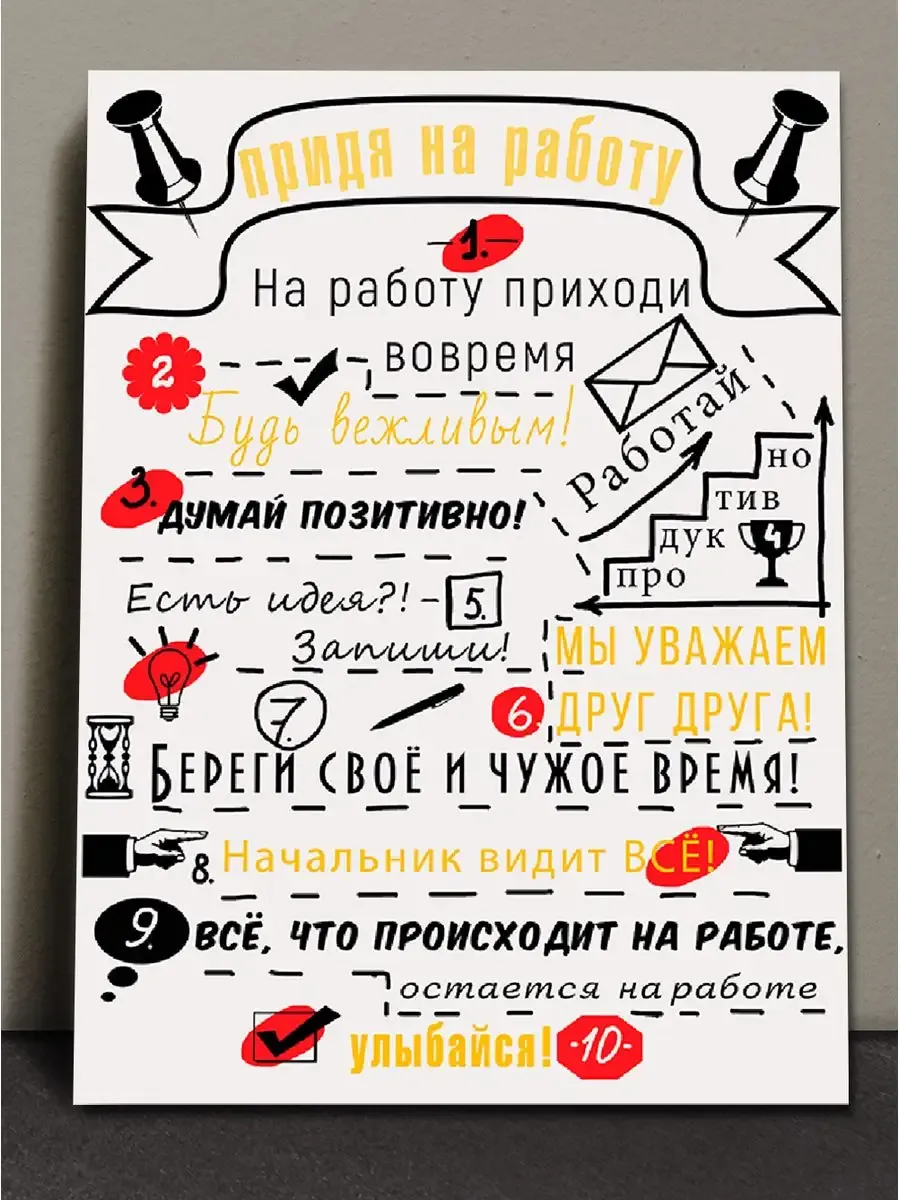 придя на работу
1.
На работу приходи
вовремя
2
Будь вежливым!
3.
ДУМАЙ ПОЗИТИВНО!
Работай
про
дук
тив
но
4
Есть идея?! - 5.
Запиши!
6.
МЫ УВАЖАЕМ
ДРУГ ДРУГА!
7.
БЕРЕГИ СВОЁ И ЧУЖОЕ ВРЕМЯ!
8. Начальник видит ВСЁ!
9. ВСЁ, ЧТО ПРОИСХОДИТ НА РАБОТЕ,
остается на работе
улыбайся! -10-